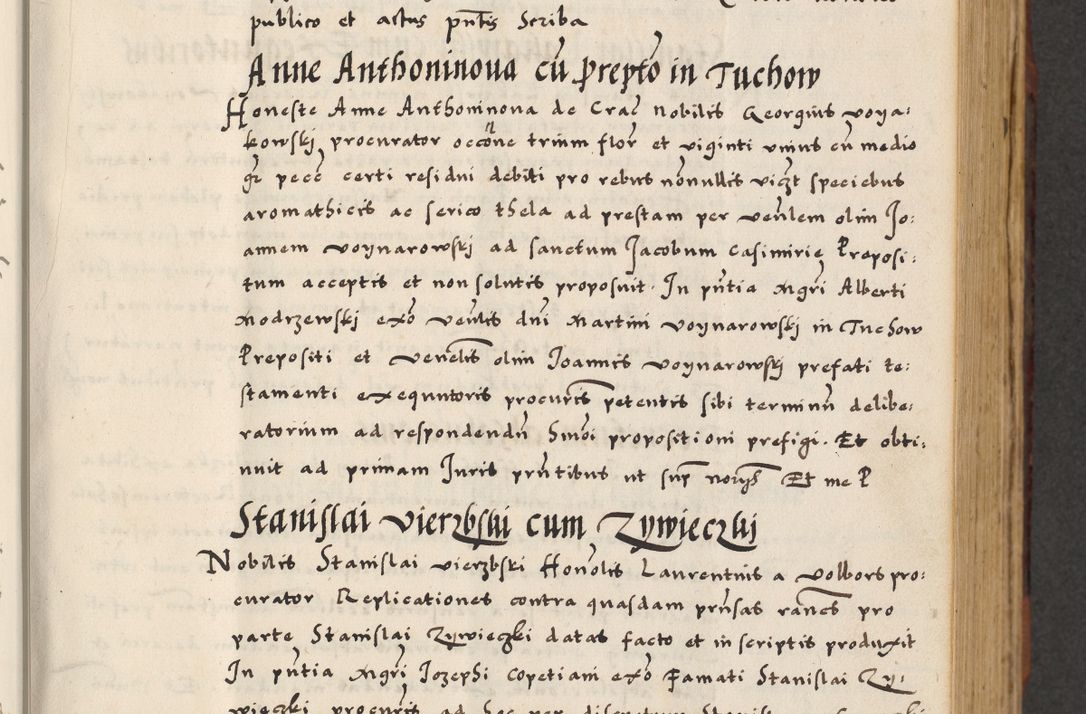 publico et actus pntis Scriba
Anne Anthoninoua cu prepto in Tuchow
Honeste Anne Anthoninoua de Crac Nobilis Georgius voya:
kowskj procurator occone trium flor et viginti vnius cu medio
gr pecc certi residui debiti pro rebus nonullis viczt speciebus
aromathicis ac serico thela ad prestam per venlem olim Jo:
annem voynarowskj ad sanctum Jacobum Casimirie Preposi:
tum acceptis et non solutis proposuit. In pntia Mgri Alberti
Modrzewskj exo venlis dni Martini voynarowskj in Tuchow
Prepositi et venelis olim Joannis voynarowskj prefati te:
stamenti exequutoris procuris petentis sibi terminu delibe:
ratorium ad respondendu Smoi propositioni prefigi. Et obti:
nuit ad primam Juris prntibus ut sup Et me P
Stanislai vierzbski cum Zywieczki
Nobilis Stanislai vierzbski Honolis Laurentius a volbors pro:
curator Replicationes contra quasdam prnsas rancs pro
parte Stanislai Zywieczki datas facto et in scriptis produxit
In pntia Mgri Jozephi Copetiani exo Famati Stanislai Zy:
wieczki procuris ad hoc per